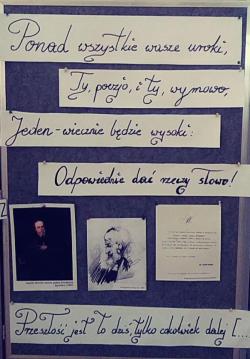 Ponad wszystkie wasze uroki,
Ty, poezjo, i ty, wymowo,
Jeden - wiecznie będzie wysoki:
Odpowiednie dać rzeczy słowo!
Przeszłość jest to dziś, tylko cokolwiek dalej [...